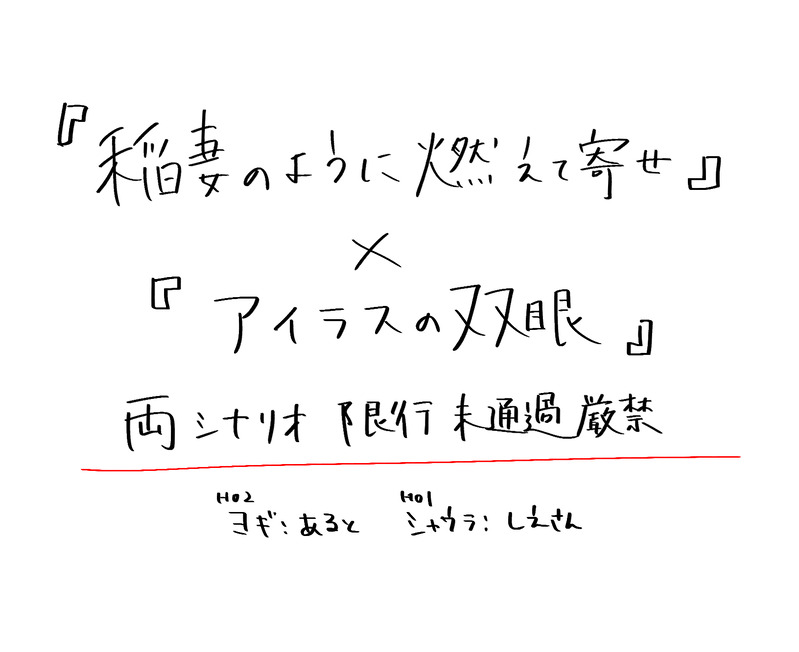 『稲妻のように燃えて寄せ』
×
『アイラスの双眼』
両シナリオ限行未通過厳禁
HO2 ヨギ：あると HO1 シャウラ：しえさん